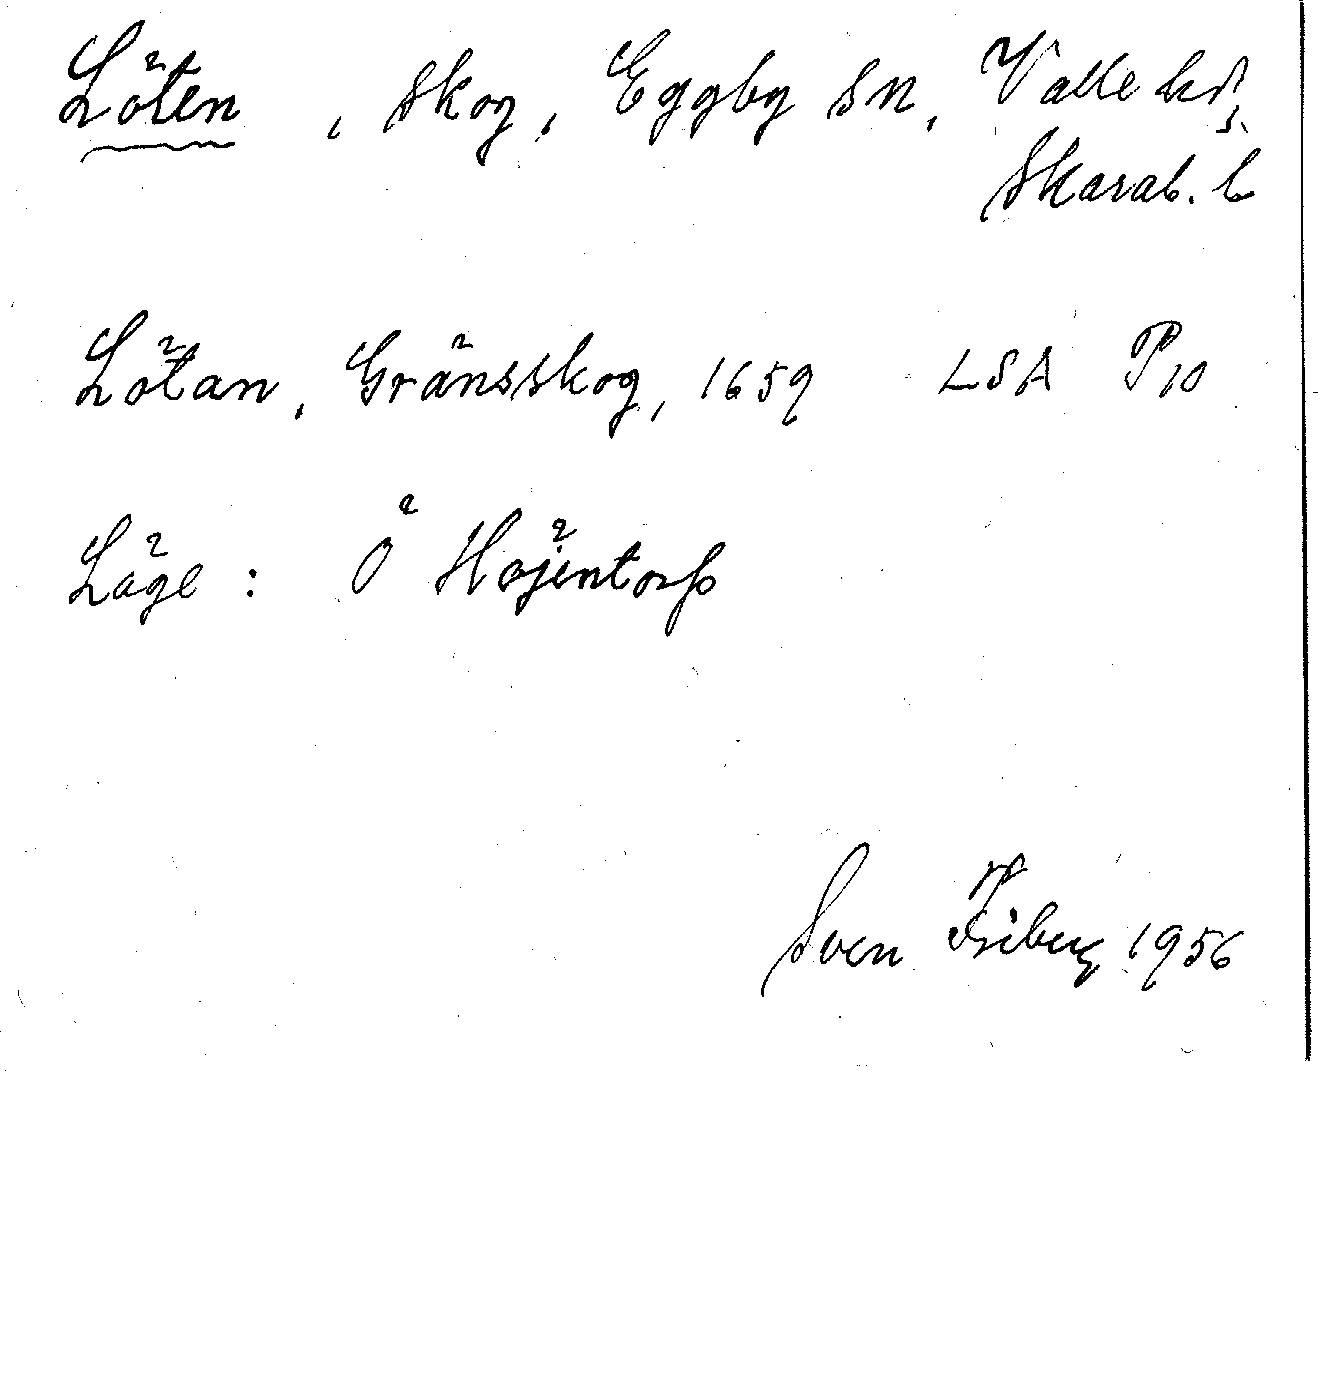 Löten, Skog, Eggby sn, Valle hd,
Skarab. l
Lötan, Gränsskog, 1659 LSA P10
Läge: Ö Höjentorp
Sven Friberg 1956